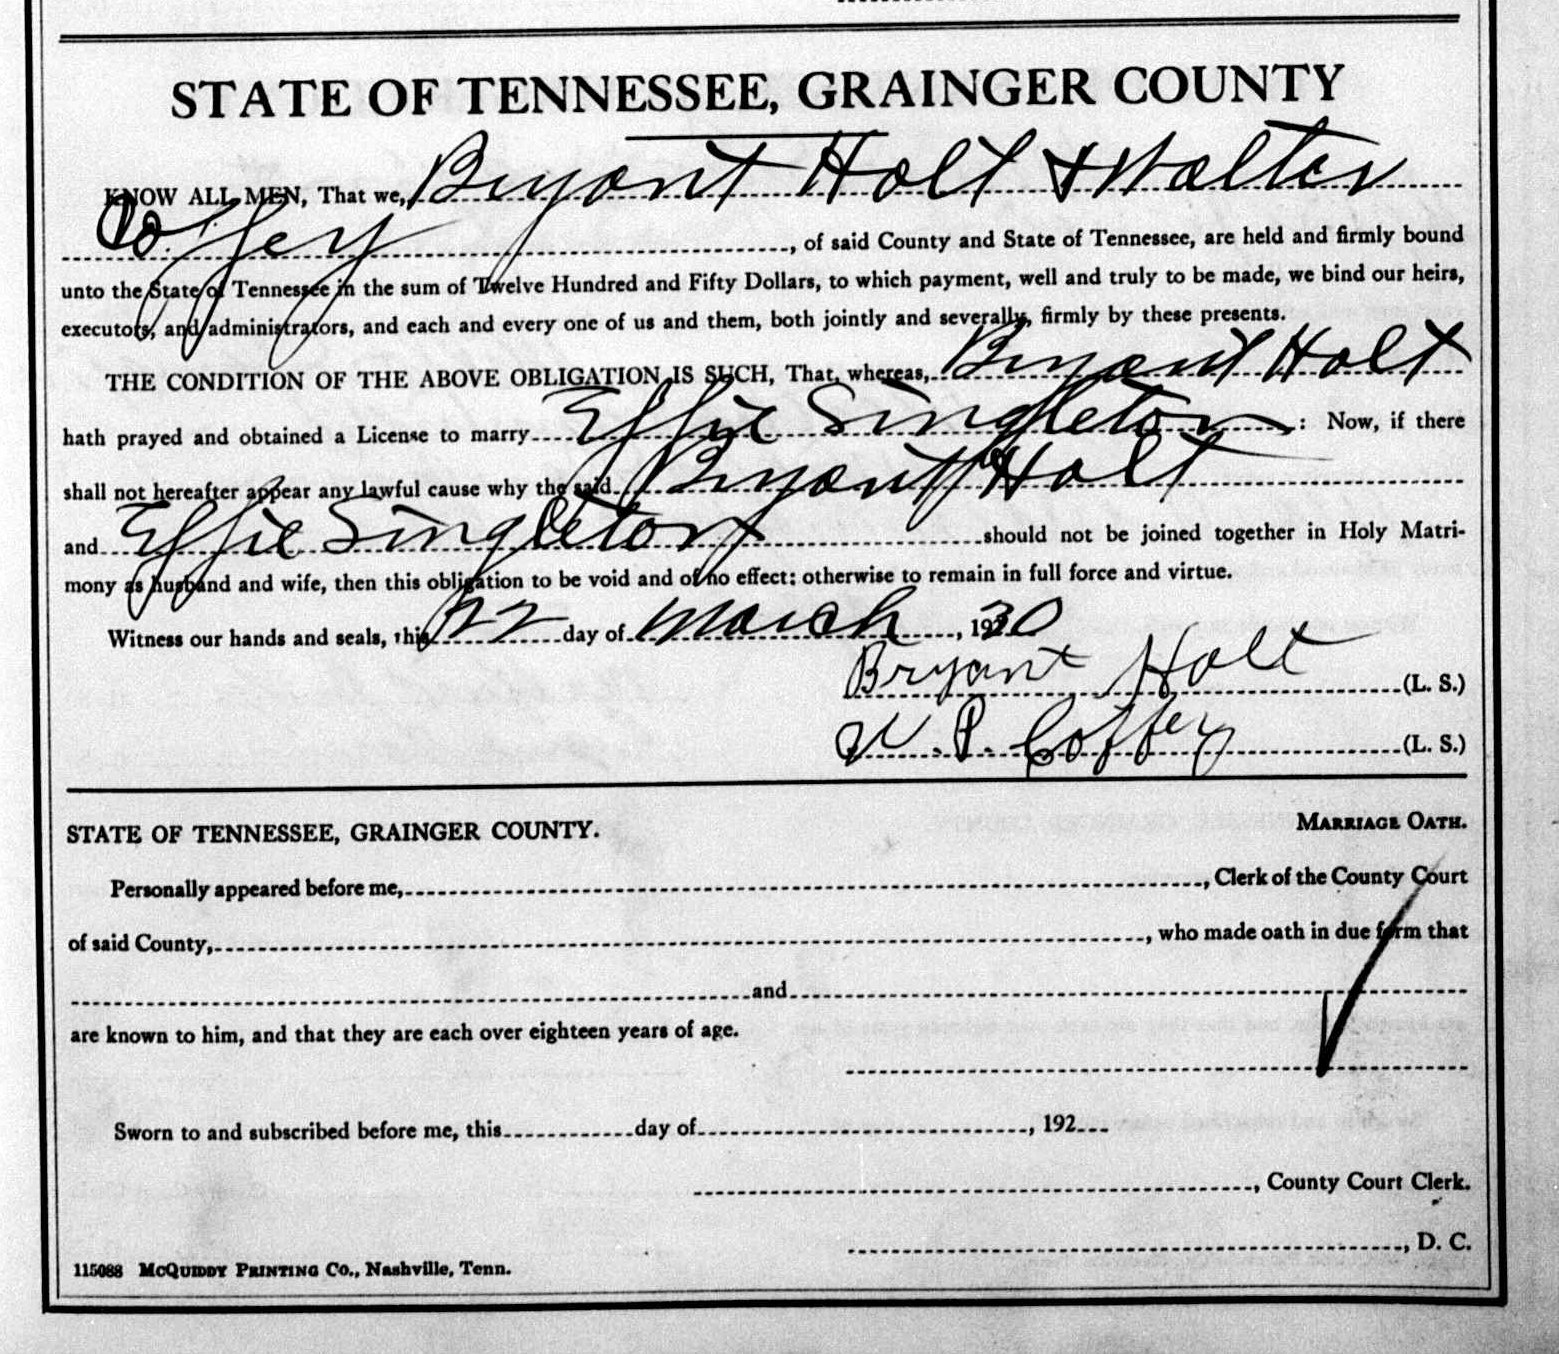 STATE OF TENNESSEE, GRAINGER COUNTY
KNOW ALL MEN, That we, Bryant Holt & Walter
Coffey, of said County and State of Tennessee, are held and firmly bound
unto the State of Tennessee in the sum of Twelve Hundred and Fifty Dollars, to which payment, well and truly to be made, we bind our heirs,
executors, and administrators, and each and every one of us and them, both jointly and severally, firmly by these presents.
THE CONDITION OF THE ABOVE OBLIGATION IS SUCH, That, whereas, Bryant Holt
hath prayed and obtained a License to marry Effie Singleton: Now, if there
shall not hereafter appear any lawful cause why the said Bryant Holt
and Effie Singleton should not be joined together in Holy Matri-
mony as husband and wife, then this obligation to be void and of no effect: otherwise to remain in full force and virtue.
Witness our hands and seals, this 22 day of March, 1930
Bryant Holt (L. S.)
W. P. Coffey (L. S.)
STATE OF TENNESSEE, GRAINGER COUNTY. MARRIAGE OATH.
Personally appeared before me, , Clerk of the County Court
of said County, , who made oath in due form that
and
are known to him, and that they are each over eighteen years of age.
Sworn to and subscribed before me, this day of , 192
, County Court Clerk.
, D. C.
115088 MCQUIDDY PRINTING CO., Nashville, Tenn.